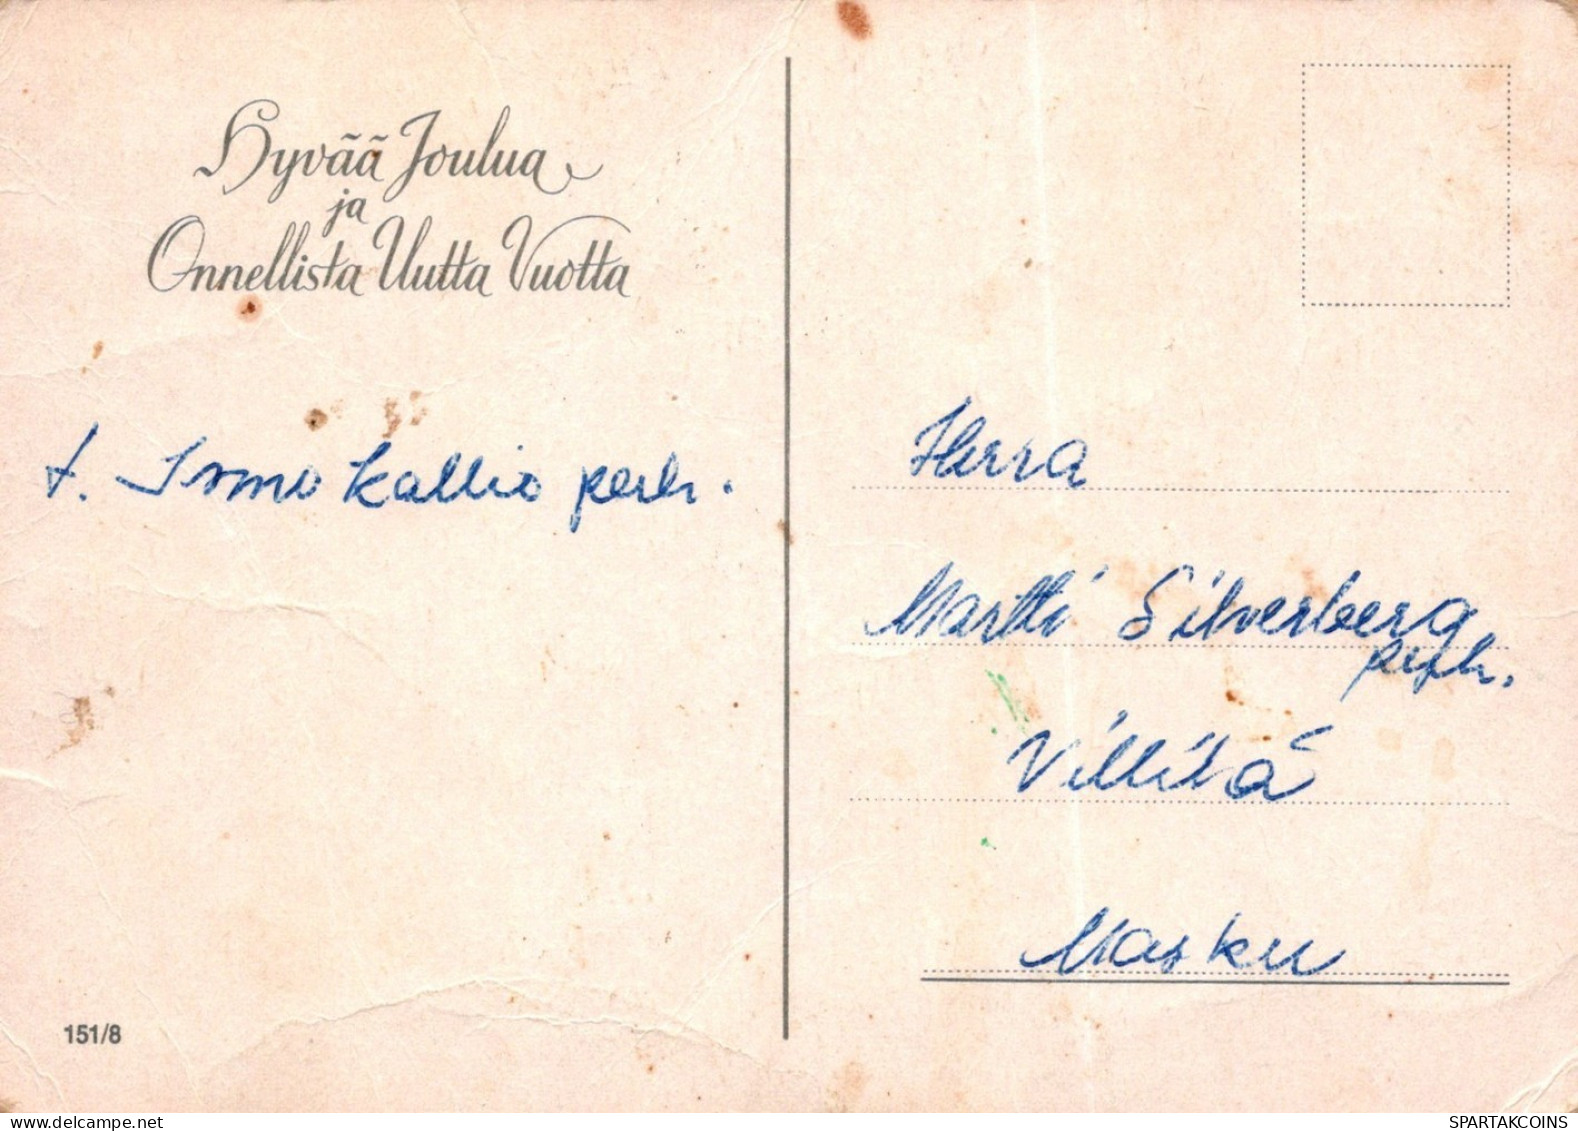 Hyvää Joulua
ja
Onnellista Uutta Vuotta
t. Ismo Kallio perh.
151/8
Herra
Martti Silverberg
perh.
Villilä
Masku
SPARTAKCOINS